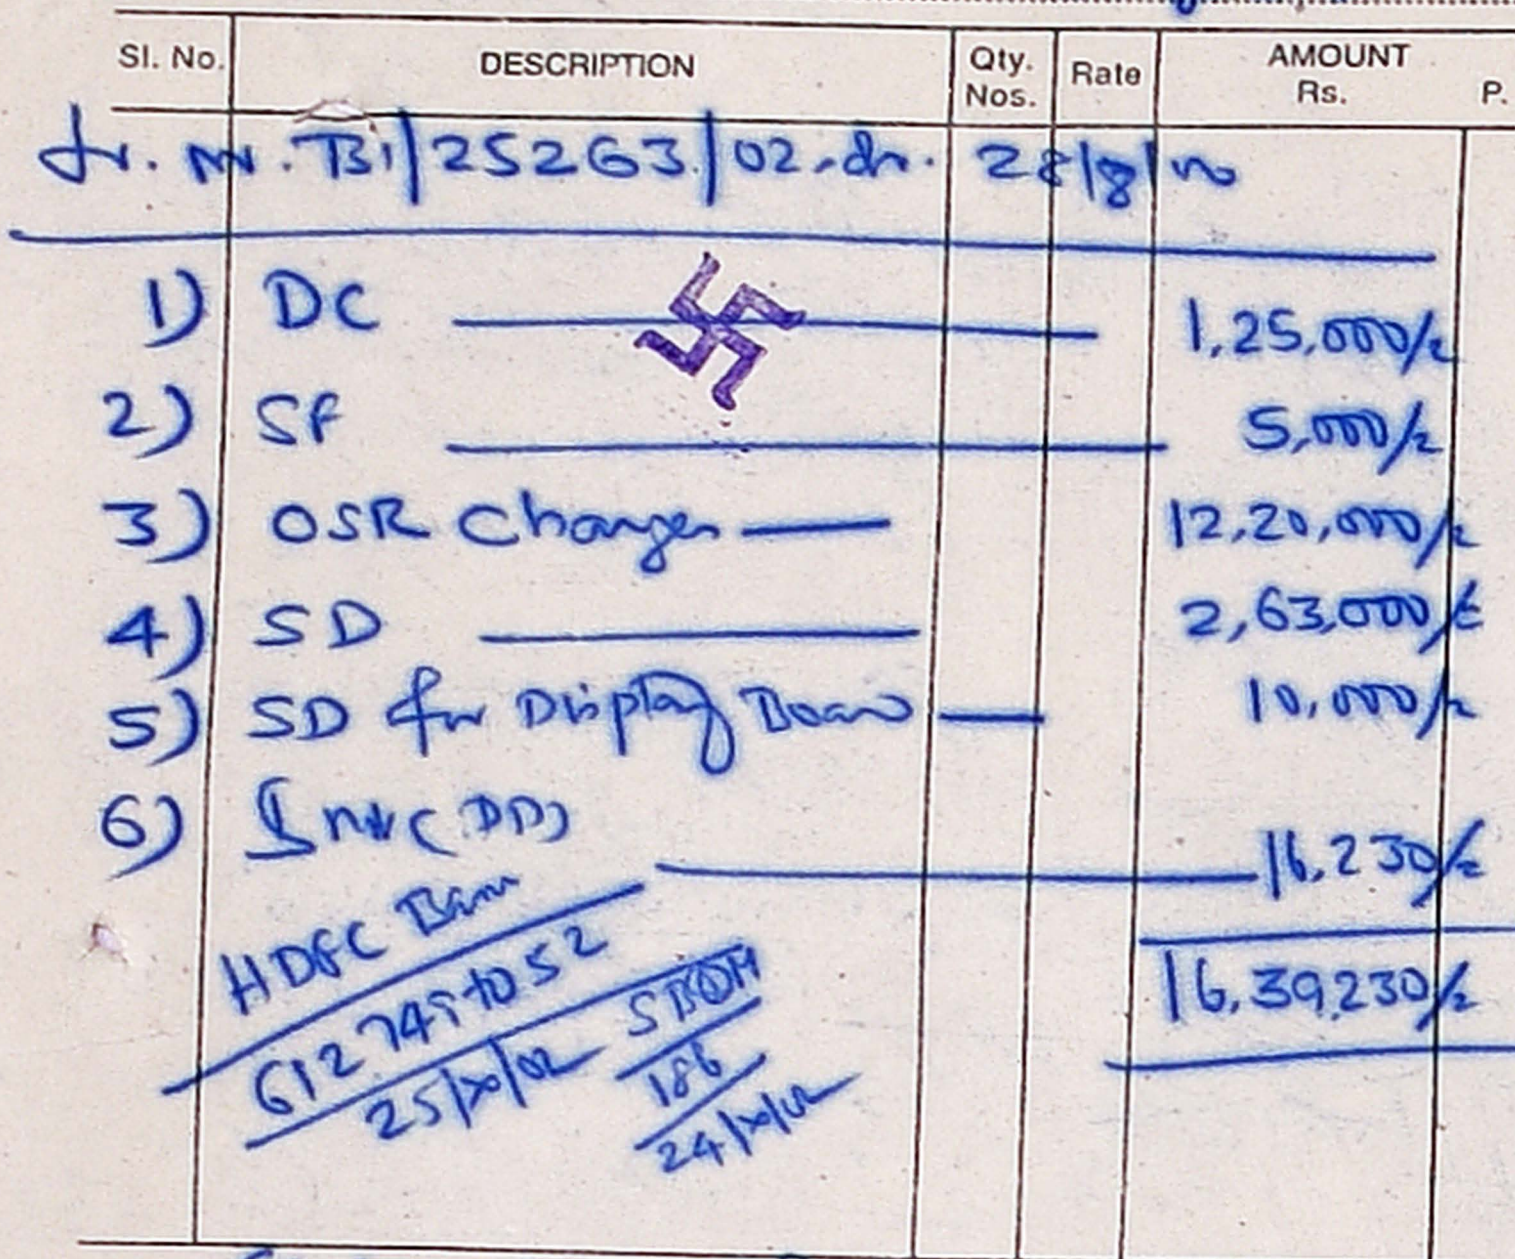 Sl. No. DESCRIPTION Qty. Nos. Rate AMOUNT Rs. P.
Lr. No. B1/25263/02. dt. 28/8/02
1) DC 1,25,000/-
2) SF 5,000/-
3) OSR Charges 12,20,000/-
4) SD 2,63,000/-
5) SD for Display Board 10,000/-
6) Int (DD) 16,230/-
16,39,230/-
HDFC Bank
25/10/02
186
24/10/02